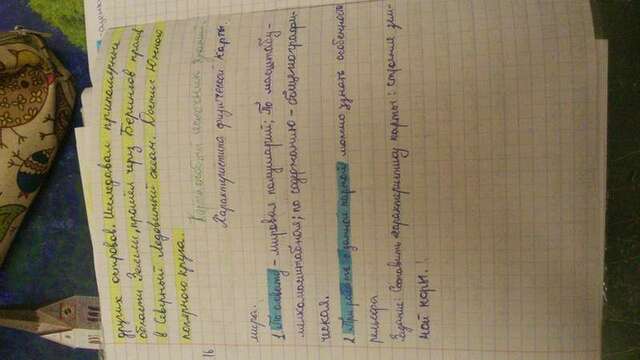 других островов. Исследовал приполярные
области Земли, прошёл через Берингов пролив
в Северный Ледовитый океан. Достиг Южного
полярного круга.
Карта особый источник знаний.
16
Характеристика физической карты.
мира.
1 По охвату - мировая полушарий; По масштабу-
мелкомасштабная; по содержанию - общегеографи-
ческая.
2 При работе с данной картой можно узнать особенности
рельефа
Задание: Составить характеристику карты: строения зем-
ной коры.